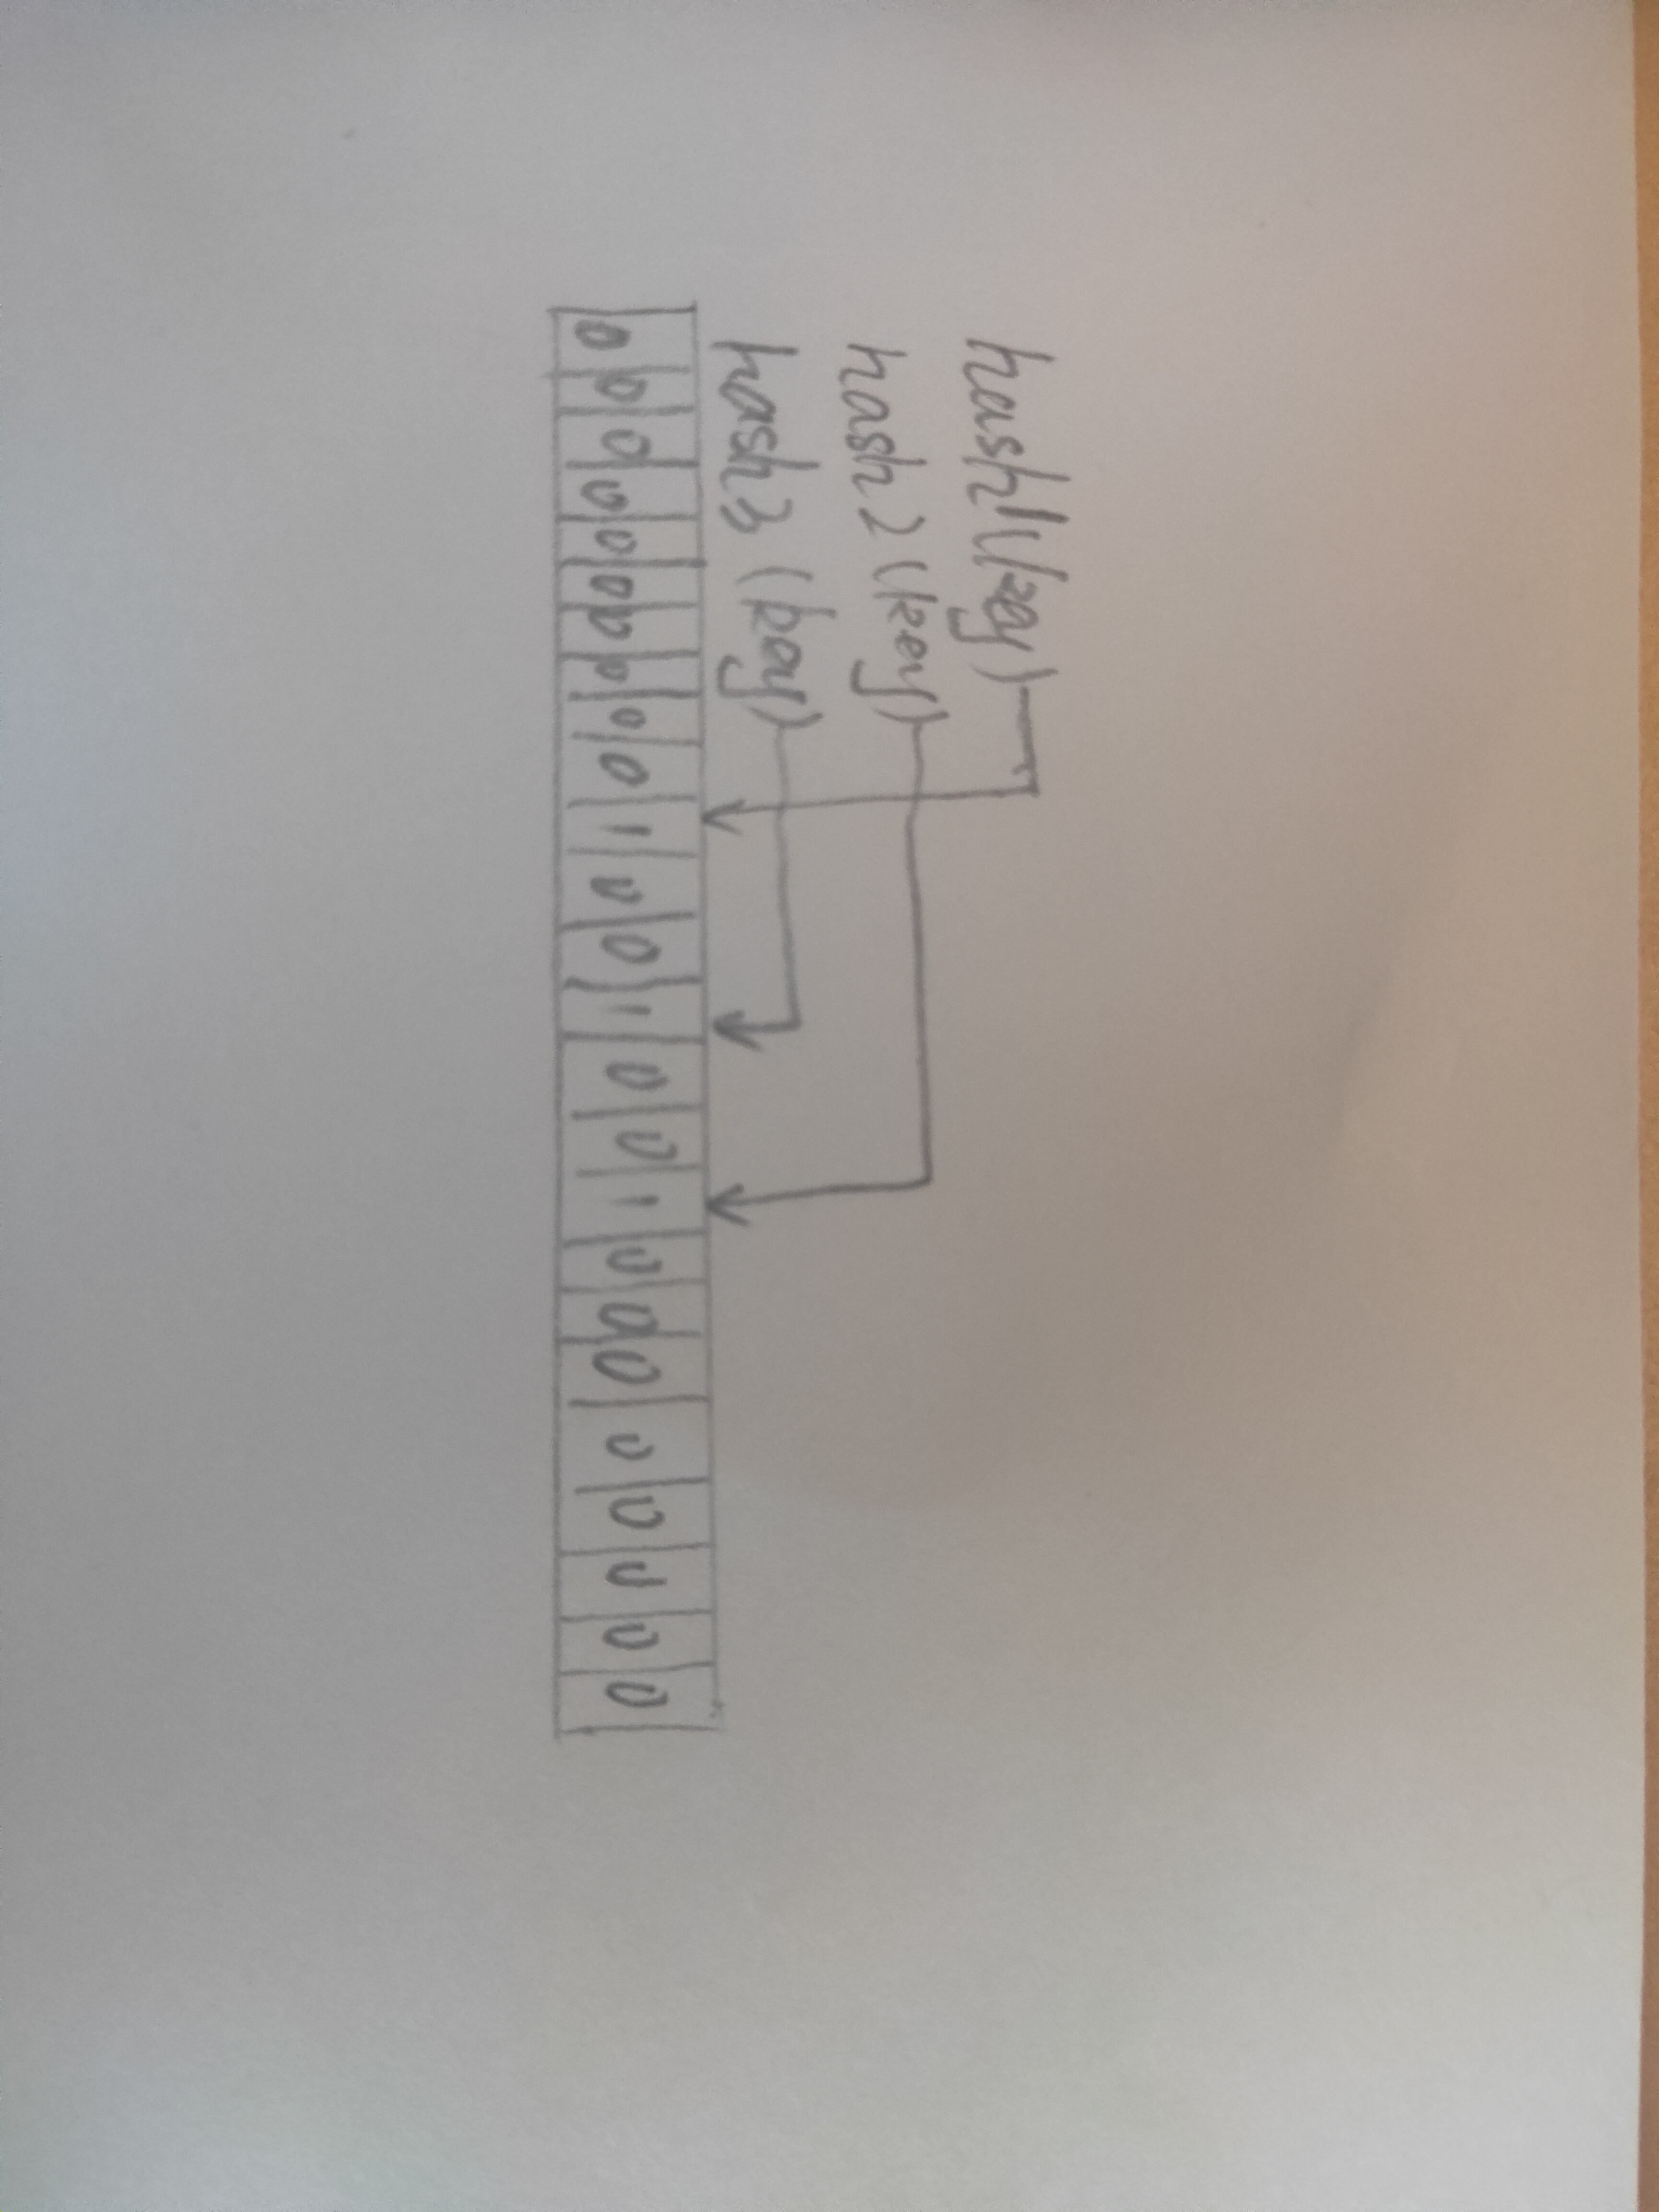 hash1(key)
hash2(key)
hash3(key)
0 0 0 0 0 0 0 0 0 0 1 0 0 1 0 0 1 0 0 0 0 0 0 0 0